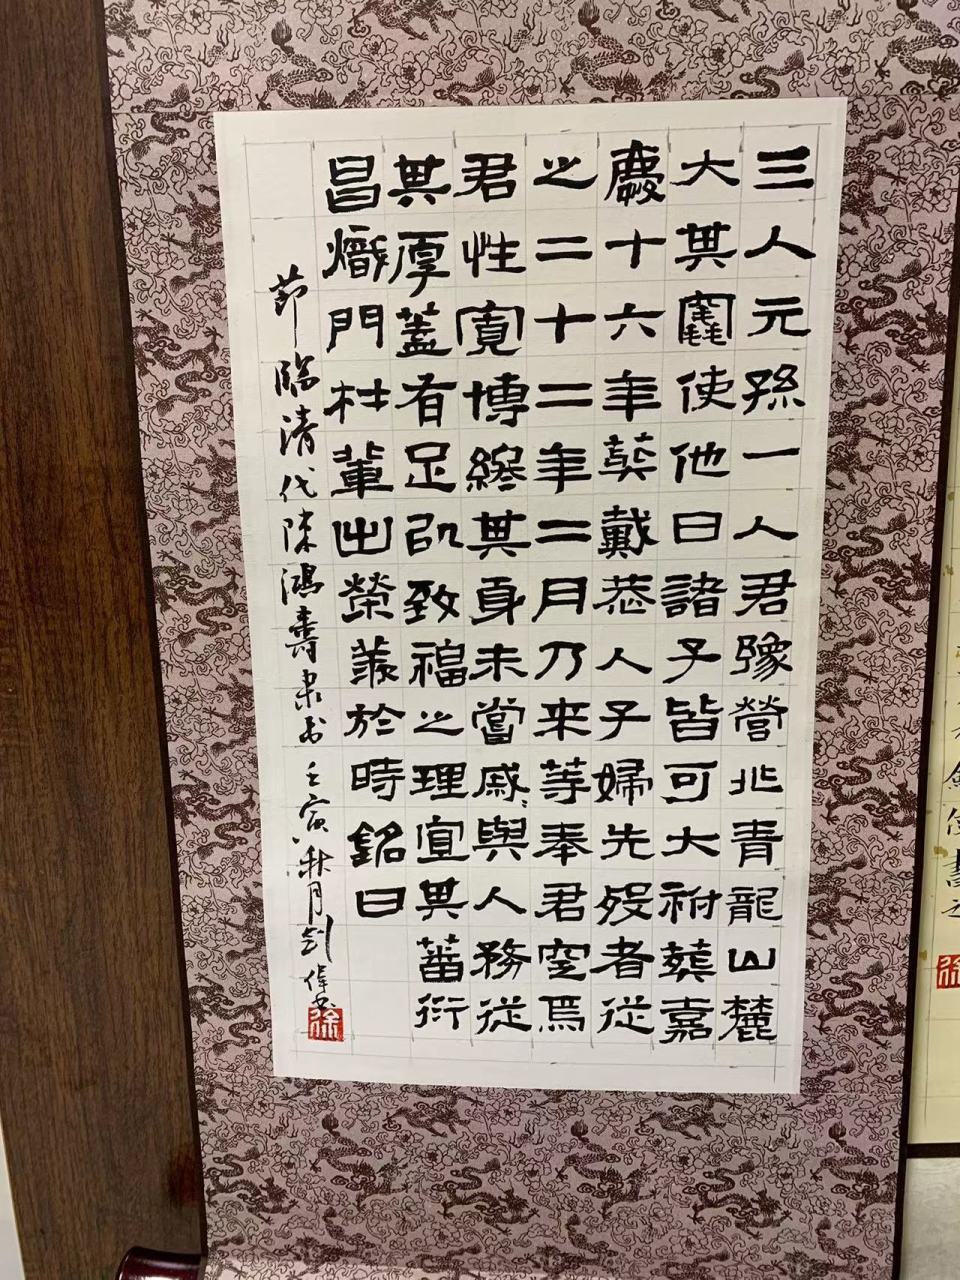 三人元孫一人君豫營兆青龍山麓
大其竁使他日諸子皆可大祔葬嘉
慶十六年葬戴恭人子婦先歿者從
之二十二年二月乃來等奉君窆焉
君性寬博終其身未嘗戚〻與人務從
其厚蓋有足以致福之理宜其蕃衍
昌熾門材輩出榮於時銘曰
節臨清代陳鴻壽隶书 壬寅秋月剑偉书
徐